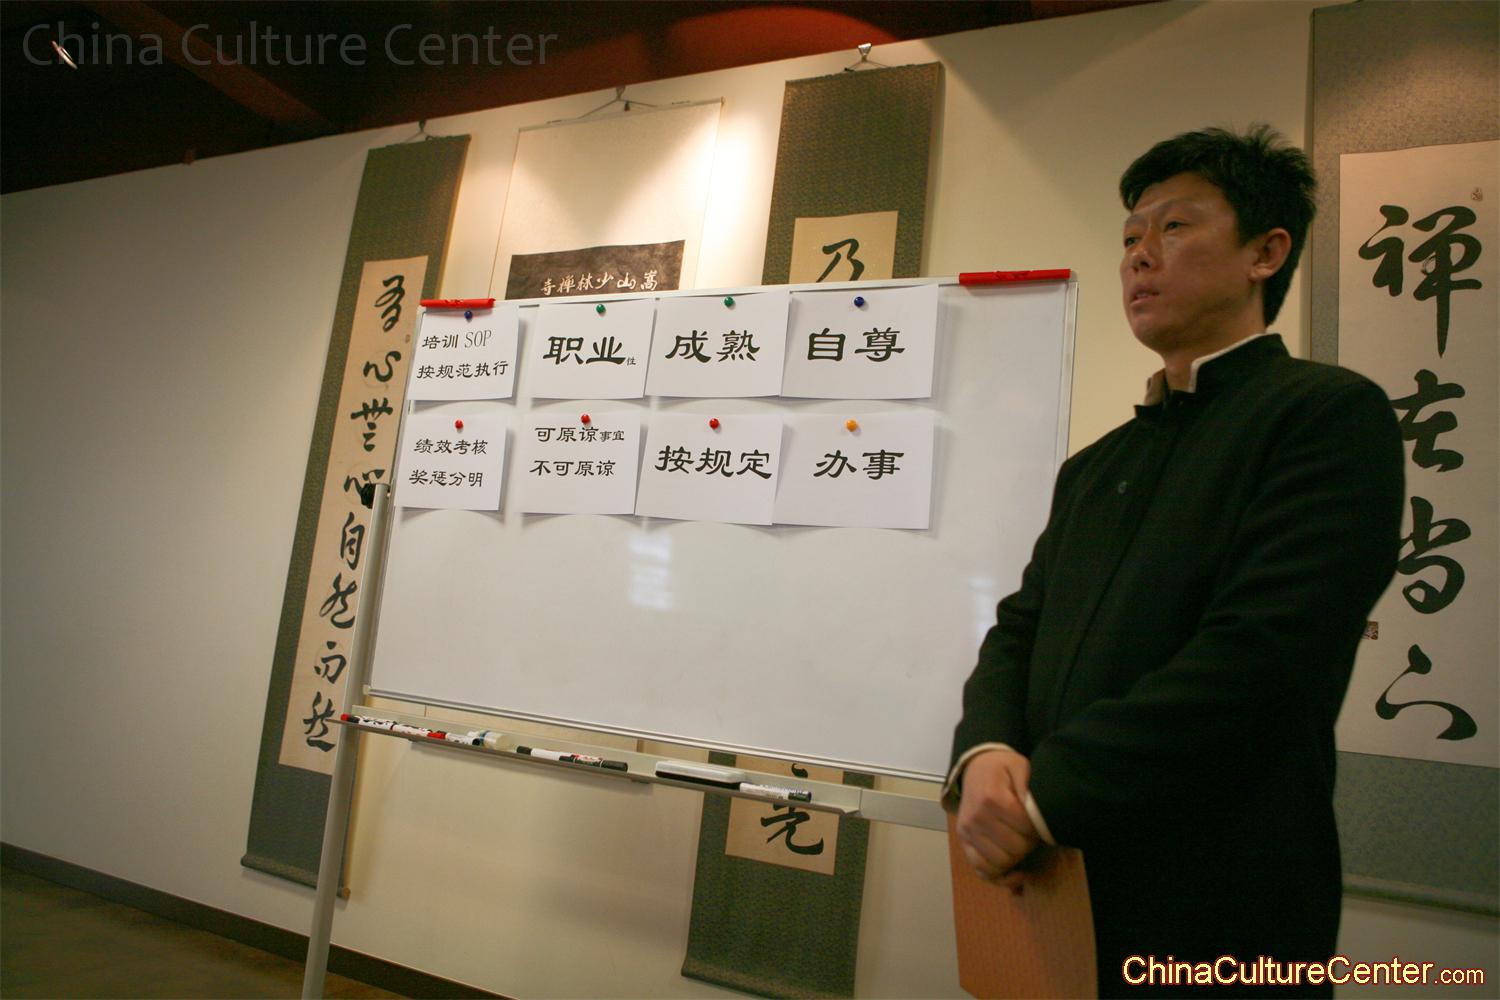 China Culture Center
有心無心自然而然
寺禅林少山嵩
乃
光
培训 SOP
按规范执行
职业性
成熟
自尊
绩效考核
奖惩分明
可原谅事宜
不可原谅
按规定
办事
禅在当下
ChinaCultureCenter.com